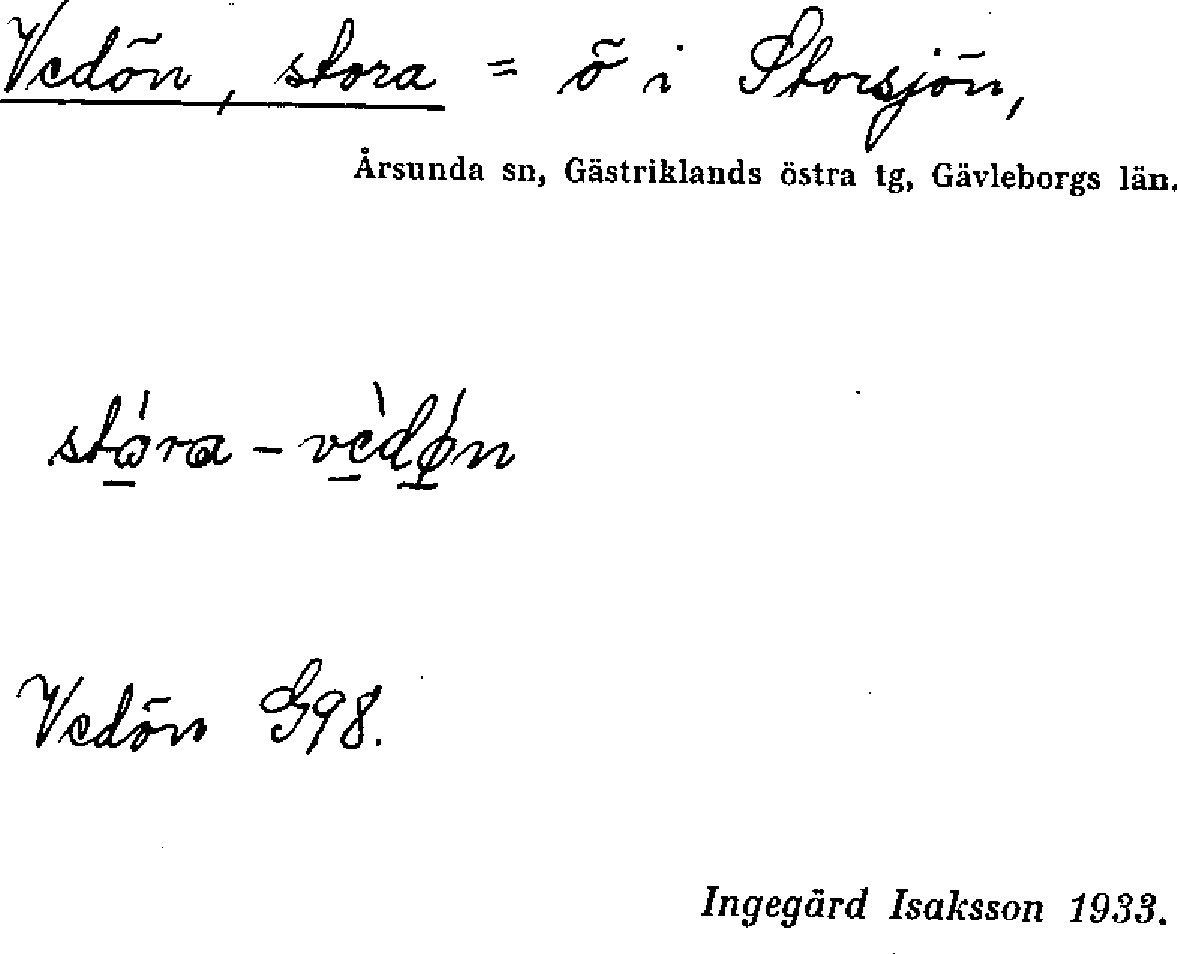 Vedön, stora = ö i Storsjön,
Årsunda sn, Gästriklands östra tg, Gävleborgs län.
stó̱ra - vè̱dǿ̱n
Vedön G98.
Ingegärd Isaksson 1933.